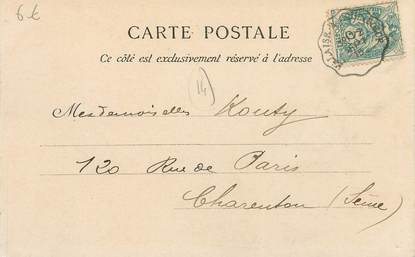 6€
CARTE POSTALE
Ce côté est exclusivement réservé à l'adresse
14
Mesdemoiselles Kouty
120 Rue de Paris
Charenton (Seine)